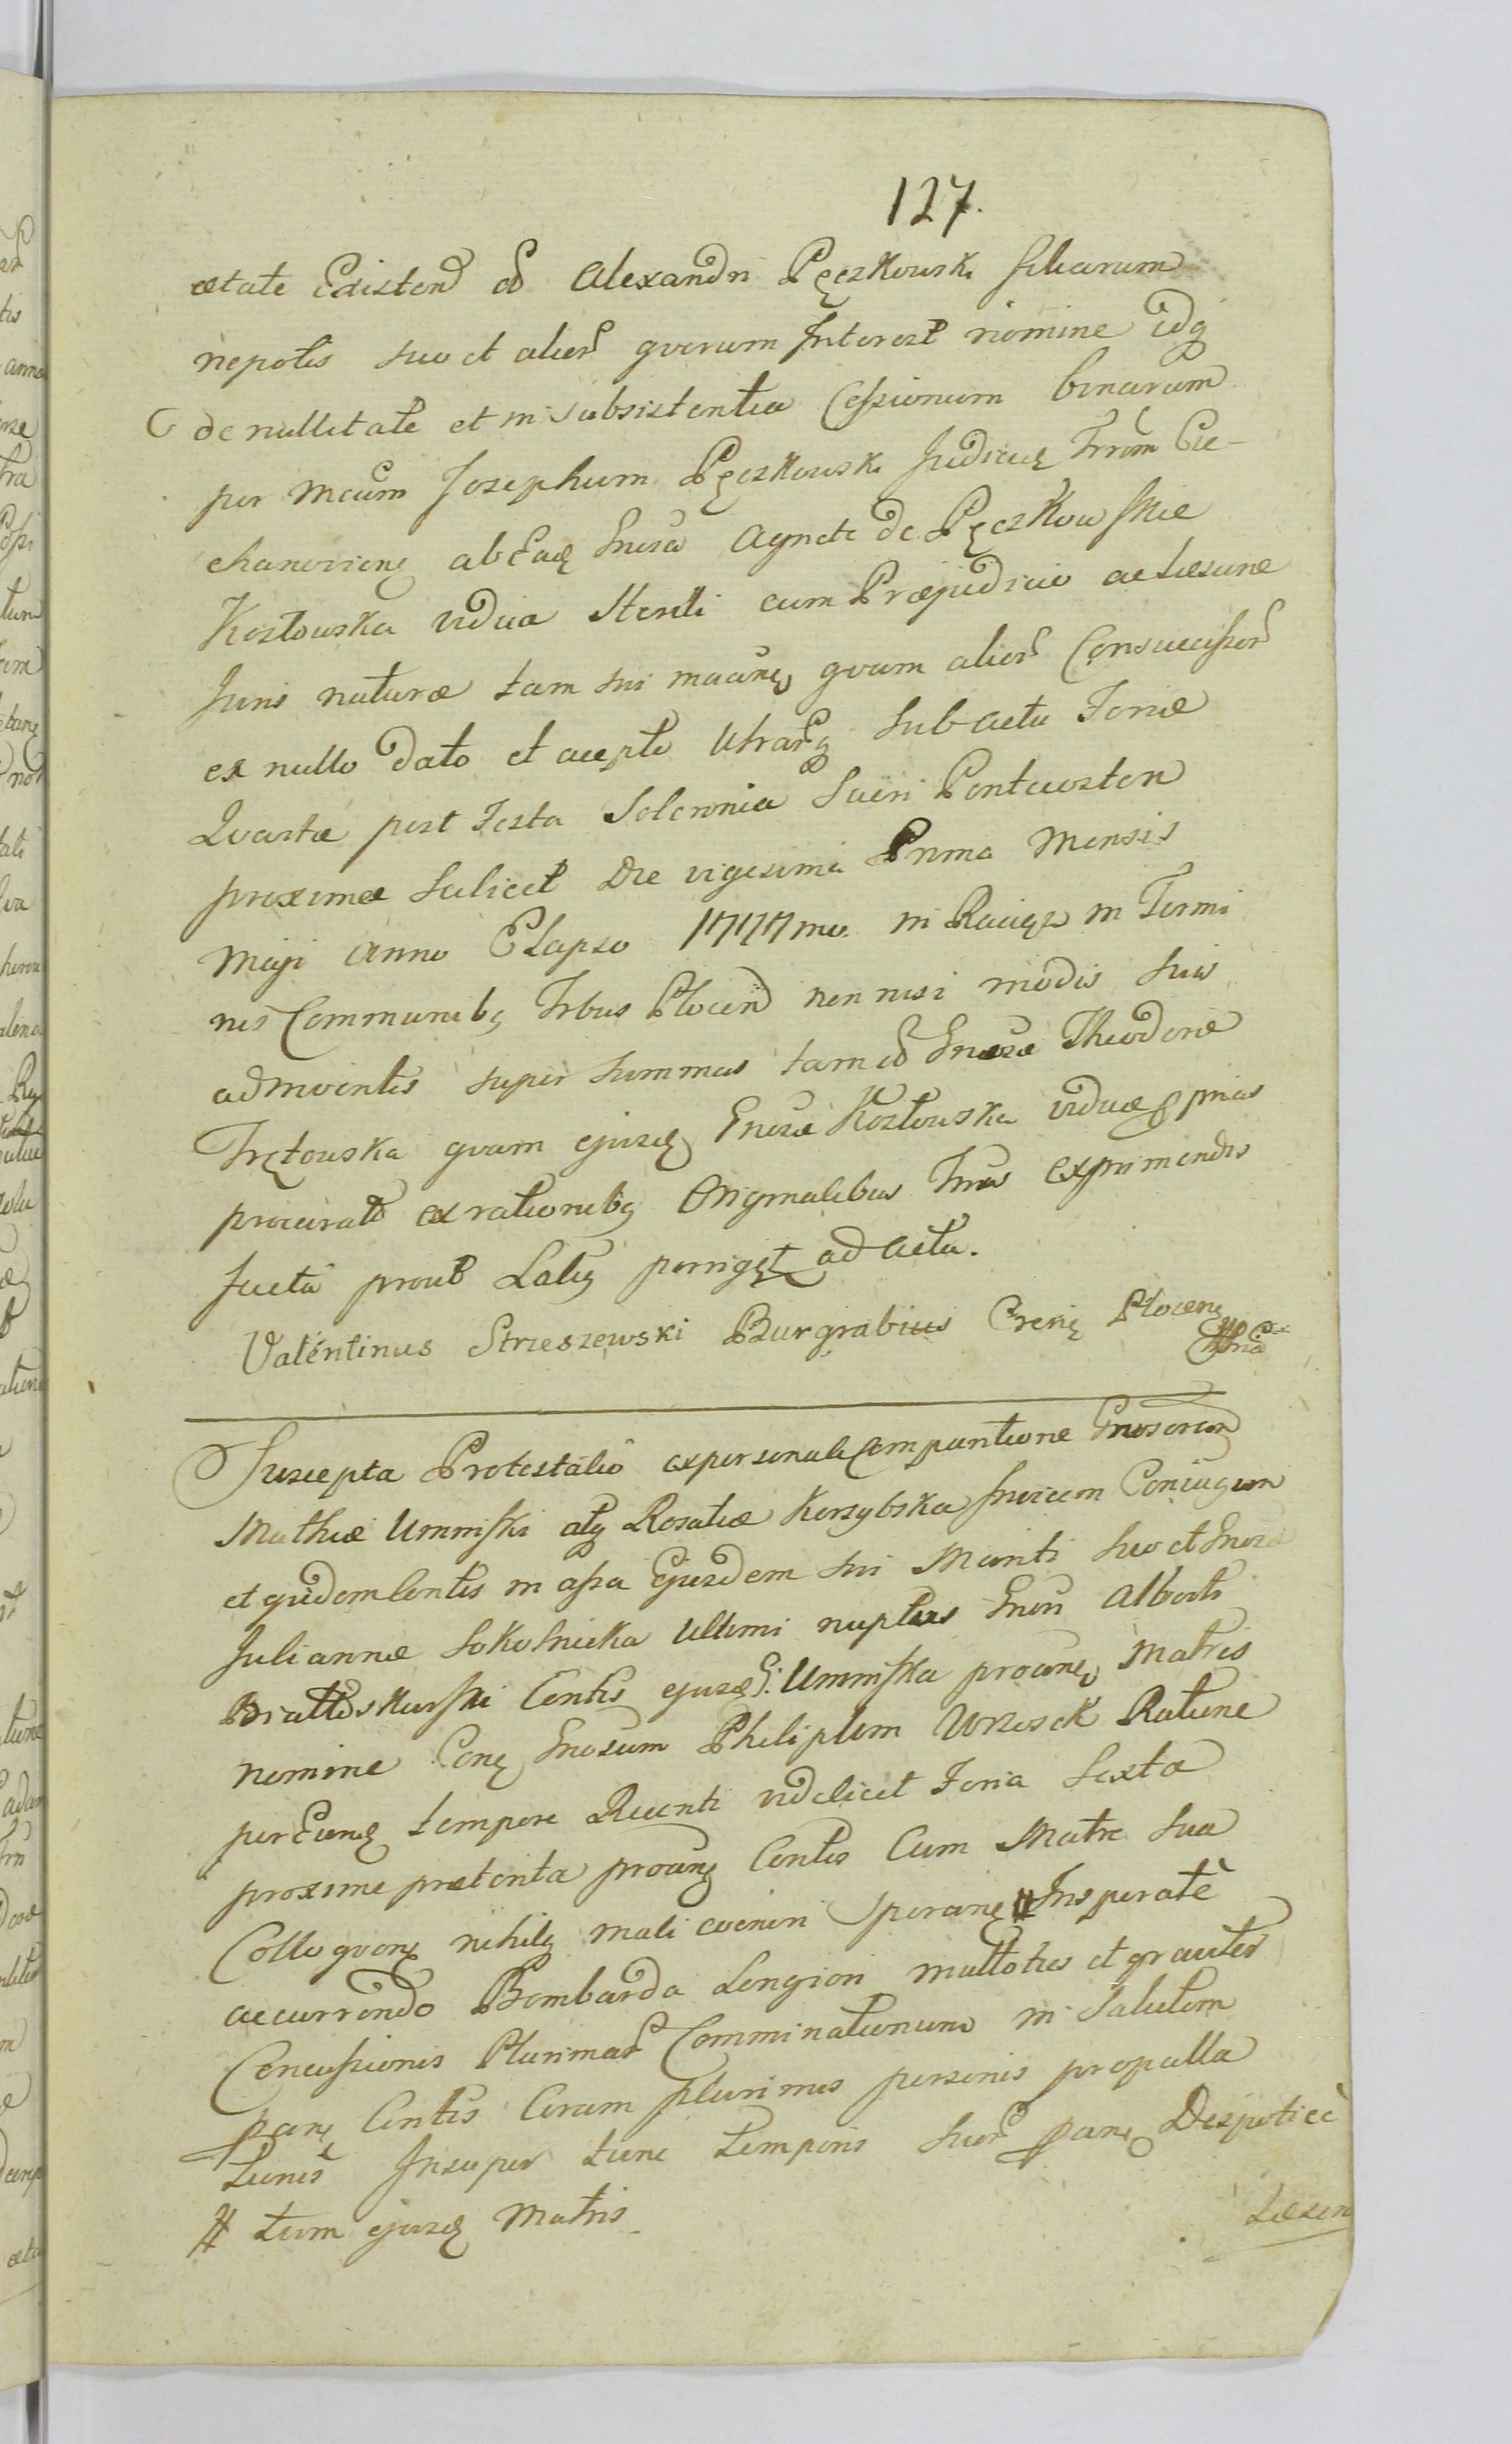 127.
ætate Existen̄ ōl Alexandri Pęczkowski filiarum
nepotis suo et alior̄ qvorum Interest nomine idq̨
de nullitate et in subsistentia Cessionum binarum
per Mcum̄ Josephum Pęczkowski Judicem̨ Trrōm Cie-
chanovien̨ ab Ead̨ Gnosa Agnete de Pęczkowskie
Kozłowska vidua Sterili cum Præjudicio ac Læsione
Juris naturæ tam sui mand̨ qvam alior̄ Consuccessor̄
ex nullo dato et accepto Utrarq̨ sub actu Feriæ
Qvartæ post Festa Solennia Sacri Pentecosten
proximæ scilicet Die vigesima Prima Mensis
Maji Anno Elapso 1777mo. in Raciąż in Termi
nis Communibq̨ Trbus Plocen̄ non nisi modis suis
adinventis super summas tam ōl Gnosæ Theodoræ
Frętowska qvam ejusd̨ Gnosæ Kozłowska viduæ p̱ prias
procurato ex rationibq̨ Originalibus Trūs exprimendis
facta prout Latiq̨ porrigęt ad acta.
Valentinus Strzeszewski Burgrabius Crenis̨ Plocen̨

Suscepta Protestatio ex personali Comparitione Gnosorum
Mathiæ Uminski atq̨ Rosaliæ Korzybska Invicem Coniugum
et qvidem Contis in assa Ejusdem sui Mariti suo et Gnosæ
Juliannæ Sokolnicka Ultimi nuptus Gnosi Alberti
Białłoskurski Contis ejusd̨. Uminska procren̨ Matris
nomine Con̨ Gnosum Philippum Wrzosek Ratione
per Eund̨ tempore Recenti videlicet Feria Sexta
proxime præterita procren̨ Contis Cum Matre sua
Colloqven̨ nihilq̨ mali evenire Speran̨ # Insperatè
accurrendo Bombarda Longiori multoties et graviter
Concussionis Plurimar̄ Comminationum in Salutem
p̱ran̨ Contis Coram plurimis personis propalla
tionis̄ Insuper tunc temporis suor̄ p̱ran̨ Despoticè
# tum ejusd̨ Matris
Læsion